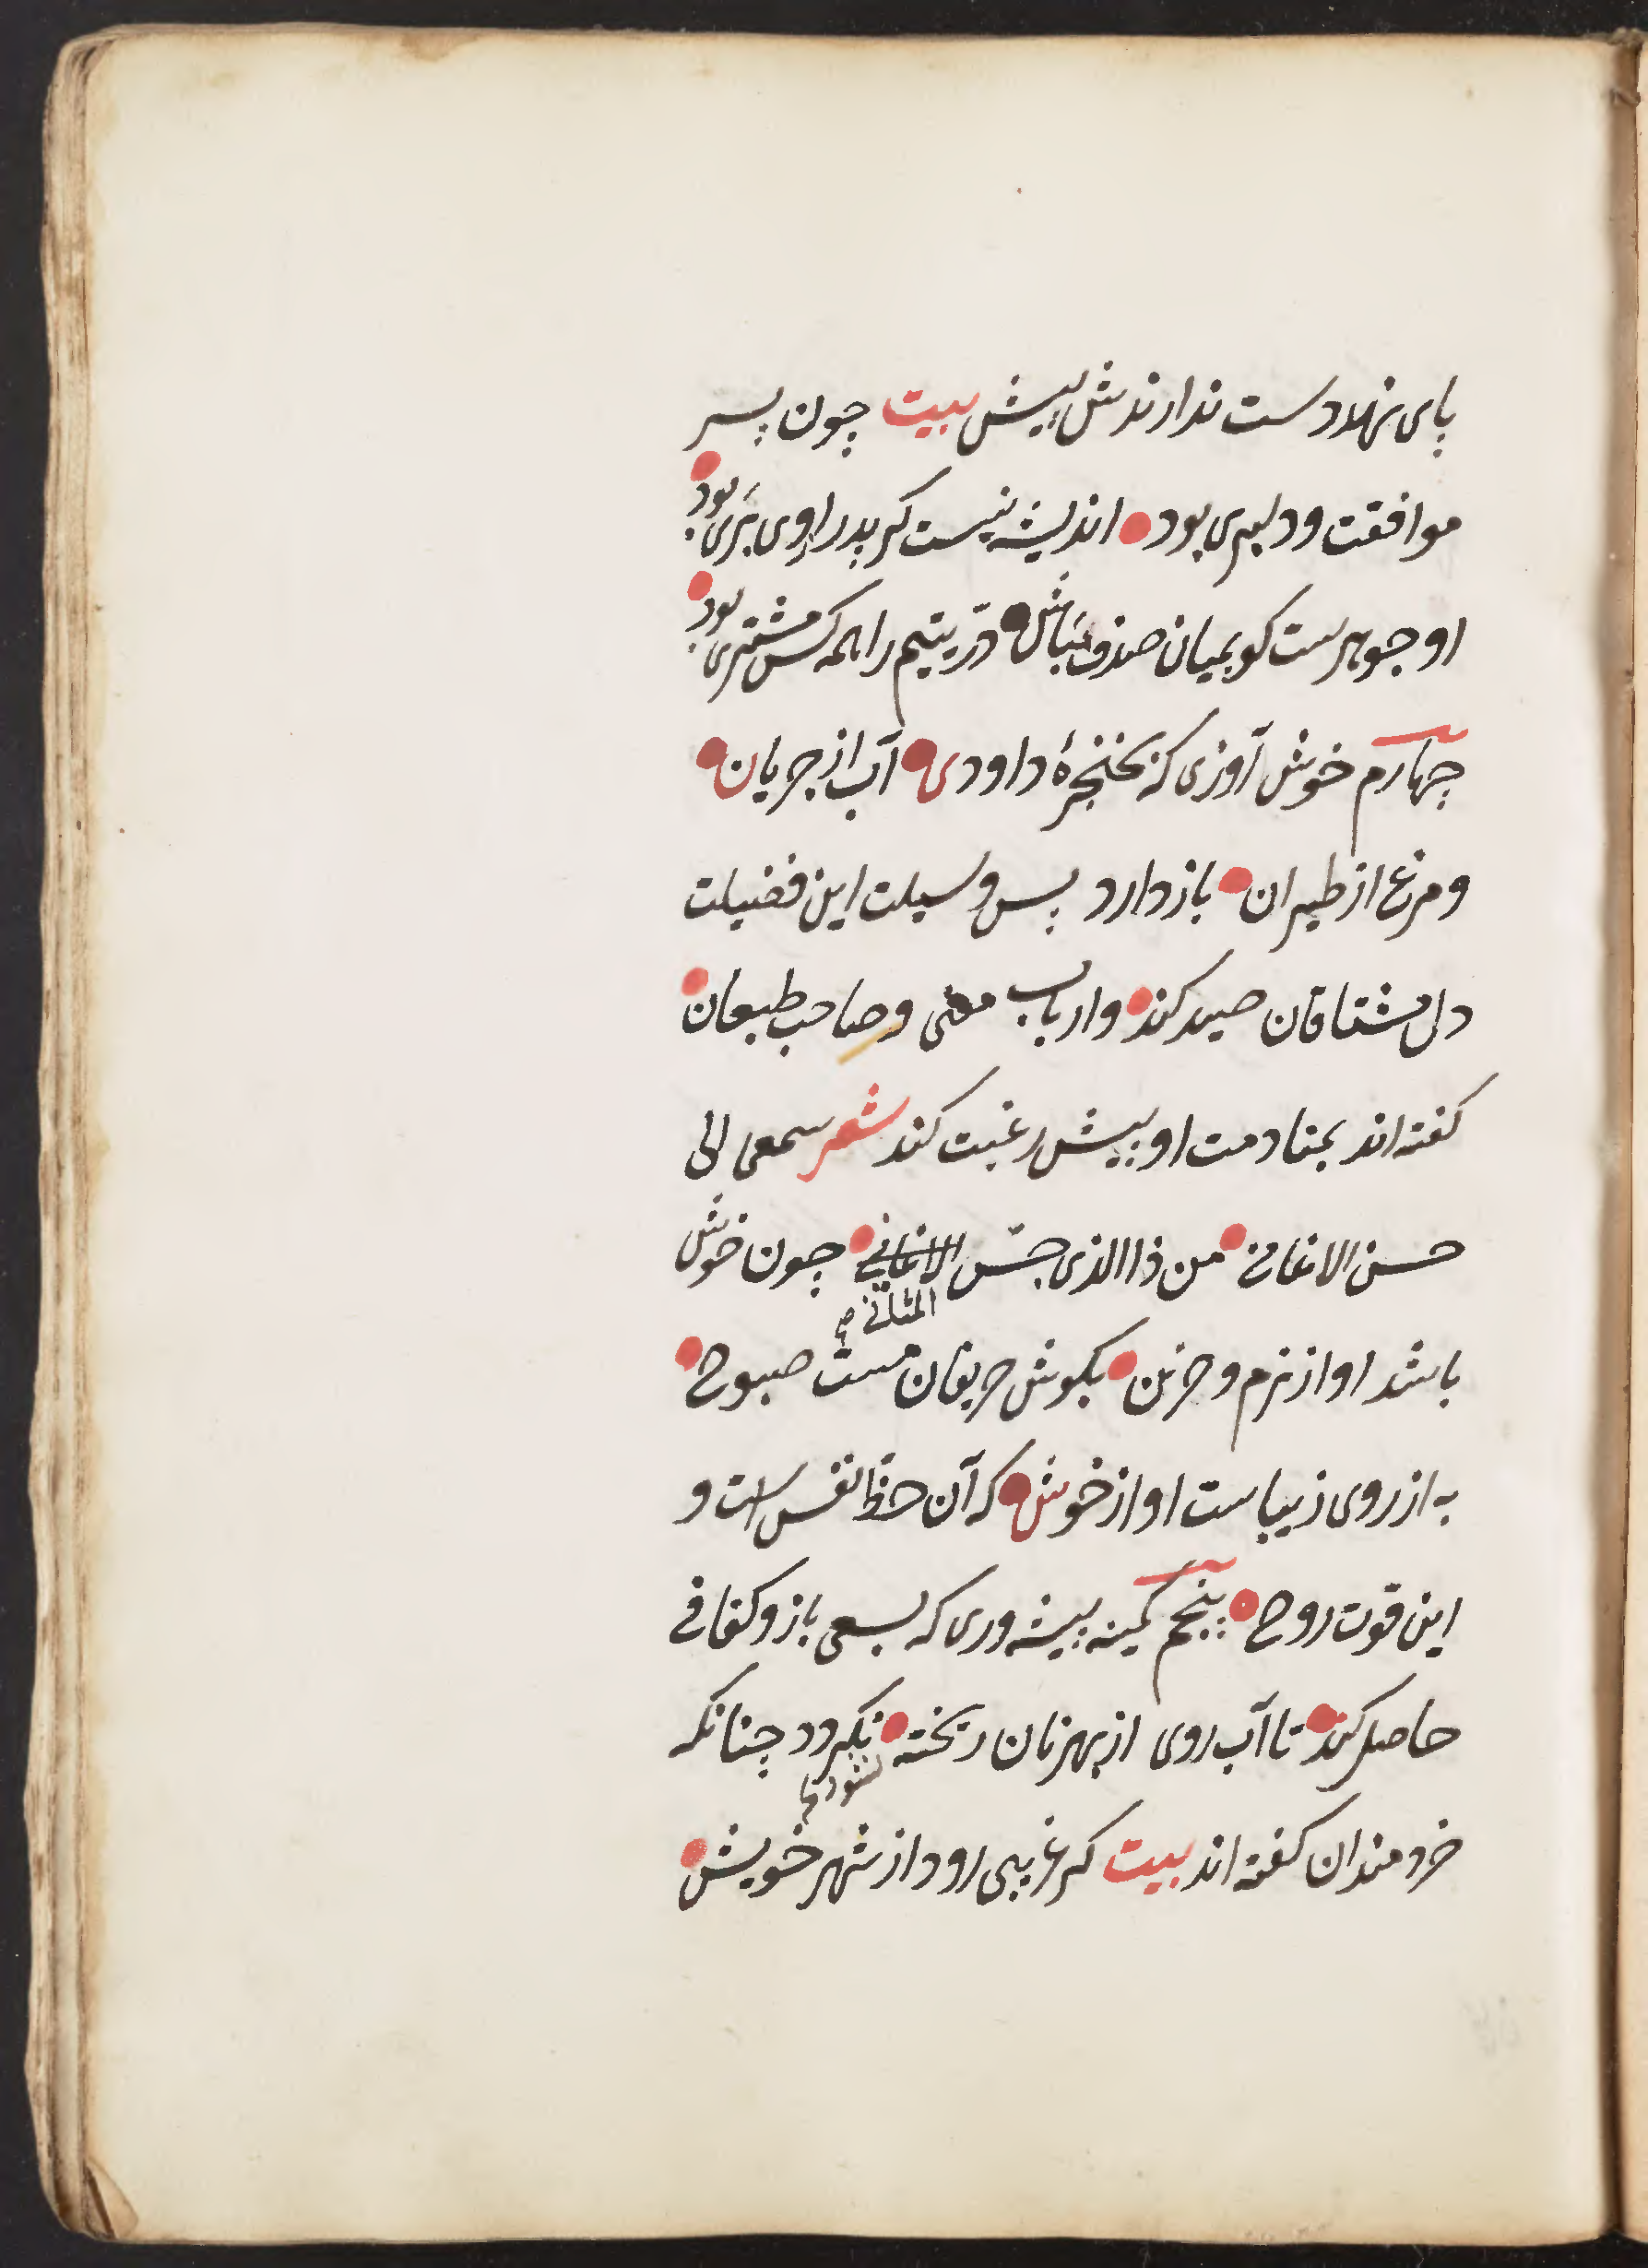 پای نهد دست ندارندش پیش بیت چون پسر
موافقت و دلبری بود اندیشه نیست کر پدر ازوی بری بود
او جوهرست کو بمیان صدف مباش درّ یتیم را همه کس مشتری بود
چهارم خوش آوازی که بحنجرهٔ داودی آب از جریان
و مرغ از طیران باز دارد پس وسیلت این فضیلت
دل مشتاقان صید کند و ارباب معنی و صاحب طبعان
کفته اند بمنادمت او بیش رغبت کند شعر سمعی الی
حسن الاغانی من ذا الذی جسّ الاغانی چون خوش
المثانی
باشد اواز نرم و حزین بکوش حریفان مست صبوح
به از روی زیباست اواز خوش که آن حظ نفس است و
این قوت روح پنجم کمینه پیشه وری که بسعی بازو کفافی
حاصل کند تا آب روی از بهر نان ریخته نکردد چنانکه
نشود
خردمندان کفته اند بیت کر غریبی رود از شهر خویش